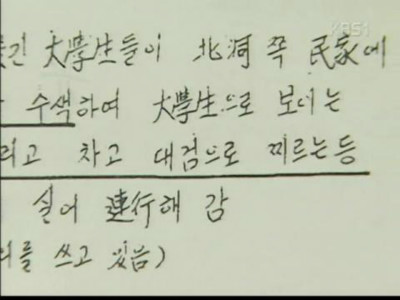 KBS1
긴 大學生들이 北洞 쪽 民家에
수색하여 大學生으로 보이는
리고 차고 대검으로 찌르는등
실어 連行해 감
를 쓰고 있음)